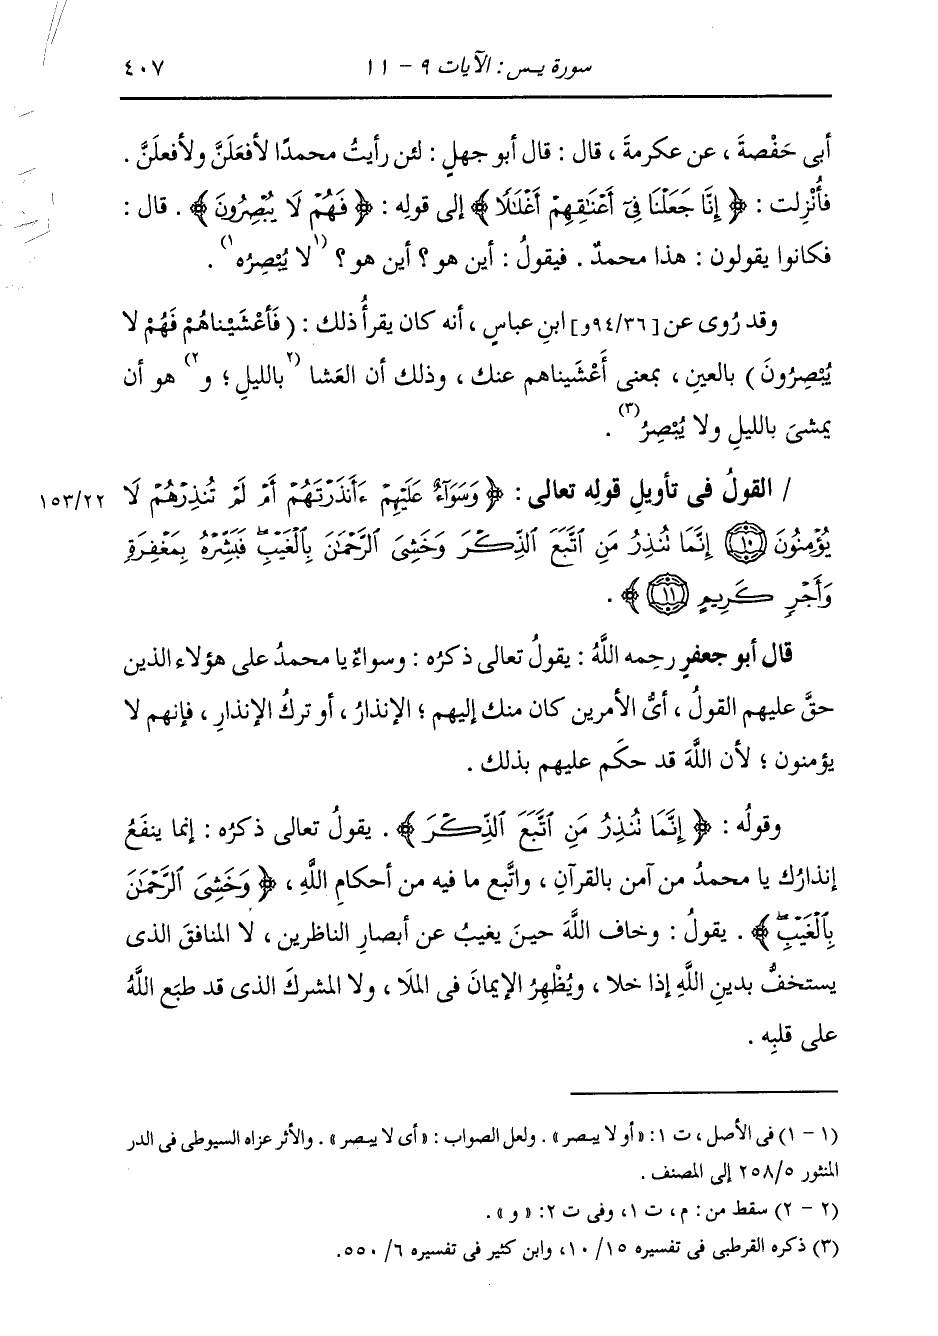 سورة يس : الآيات ٩ - ١١ ٤٠٧
أبى حَفْصةَ ، عن عكرمةَ ، قال : قال أبو جهلٍ : لئن رأيتُ محمدًا لأفعَلَنَّ ولأفعلَنَّ .
فأُنْزِلت : ﴿ إِنَّا جَعَلْنَا فِىٓ أَعْنَـٰقِهِمْ أَغْلَـٰلًا ﴾ إلى قولِه : ﴿ فَهُمْ لَا يُبْصِرُونَ ﴾ . قال :
فكانوا يقولون : هذا محمدٌ . فيقولُ : أين هو ؟ أين هو ؟ (١لا يُبْصِرُه١) .
وقد رُوِى عن [٩٤/٣٦و] ابنِ عباسٍ ، أنه كان يقرأُ ذلك : ( فَأعْشَيْناهُمْ فَهُمْ لا
يُبْصِرُونَ ) بالعينِ ، بمعنى أَعْشَيناهم عنك ، وذلك أن العَشا (٢بالليلِ ؛ و٢) هو أن
يمشىَ بالليلِ ولا يُبْصِرُ(٣) .
/ القولُ فى تأويلِ قولِه تعالى : ﴿ وَسَوَآءٌ عَلَيْهِمْ ءَأَنذَرْتَهُمْ أَمْ لَمْ تُنذِرْهُمْ لَا ١٥٣/٢٢
يُؤْمِنُونَ ۝١٠ إِنَّمَا تُنذِرُ مَنِ ٱتَّبَعَ ٱلذِّكْرَ وَخَشِىَ ٱلرَّحْمَـٰنَ بِٱلْغَيْبِ ۖ فَبَشِّرْهُ بِمَغْفِرَةٍ
وَأَجْرٍ كَرِيمٍ ۝١١ ﴾ .
قال أبو جعفرٍ رحِمه اللَّهُ : يقولُ تعالى ذكرُه : وسواءٌ يا محمدُ على هؤلاء الذين
حقَّ عليهم القولُ ، أىُّ الأمرين كان منك إليهم ؛ الإنذارُ ، أو تركُ الإنذارِ ، فإنهم لا
يؤمنون ؛ لأن اللَّهَ قد حكَم عليهم بذلك .
وقولُه : ﴿ إِنَّمَا تُنذِرُ مَنِ ٱتَّبَعَ ٱلذِّكْرَ ﴾ . يقولُ تعالى ذكرُه : إنما ينفَعُ
إنذارُك يا محمدُ من آمن بالقرآنِ ، واتَّبع ما فيه من أحكامِ اللَّهِ ، ﴿ وَخَشِىَ ٱلرَّحْمَـٰنَ
بِٱلْغَيْبِ ۖ ﴾ . يقولُ : وخاف اللَّهَ حينَ يغيبُ عن أبصارِ الناظرين ، لا المنافقَ الذى
يستخفُّ بدينِ اللَّهِ إذا خلا ، ويُظْهِرُ الإيمانَ فى الملَا ، ولا المشركَ الذى قد طبَع اللَّهُ
على قلبِه .
(١ - ١) فى الأصل ، ت ١: « أو لا يبصر » . ولعل الصواب : « أى لا يبصر » . والأثر عزاه السيوطى فى الدر
المنثور ٢٥٨/٥ إلى المصنف .
(٢ - ٢) سقط من : م ، ت ١، وفى ت ٢: « و » .
(٣) ذكره القرطبى فى تفسيره ١٥/ ١٠، وابن كثير فى تفسيره ٦/ ٥٥٠.